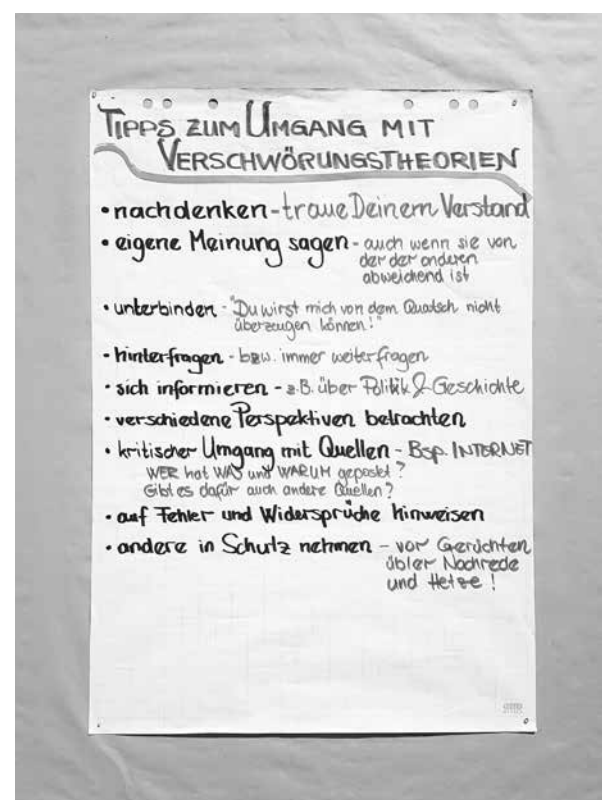 TIPPS ZUM UMGANG MIT
VERSCHWÖRUNGSTHEORIEN
• nachdenken - traue Deinem Verstand
• eigene Meinung sagen - auch wenn sie von
der der anderen
abweichend ist
• unterbinden - "Du wirst mich von dem Quatsch nicht
überzeugen können!"
• hinterfragen - bzw. immer weiterfragen
• sich informieren - z.B. über Politik & Geschichte
• verschiedene Perspektiven betrachten
• kritischer Umgang mit Quellen - Bsp. INTERNET
WER hat WAS und WARUM gepostet?
Gibt es dafür auch andere Quellen?
• auf Fehler und Widersprüche hinweisen
• andere in Schutz nehmen - vor Gerüchten
übler Nachrede
und Hetze!